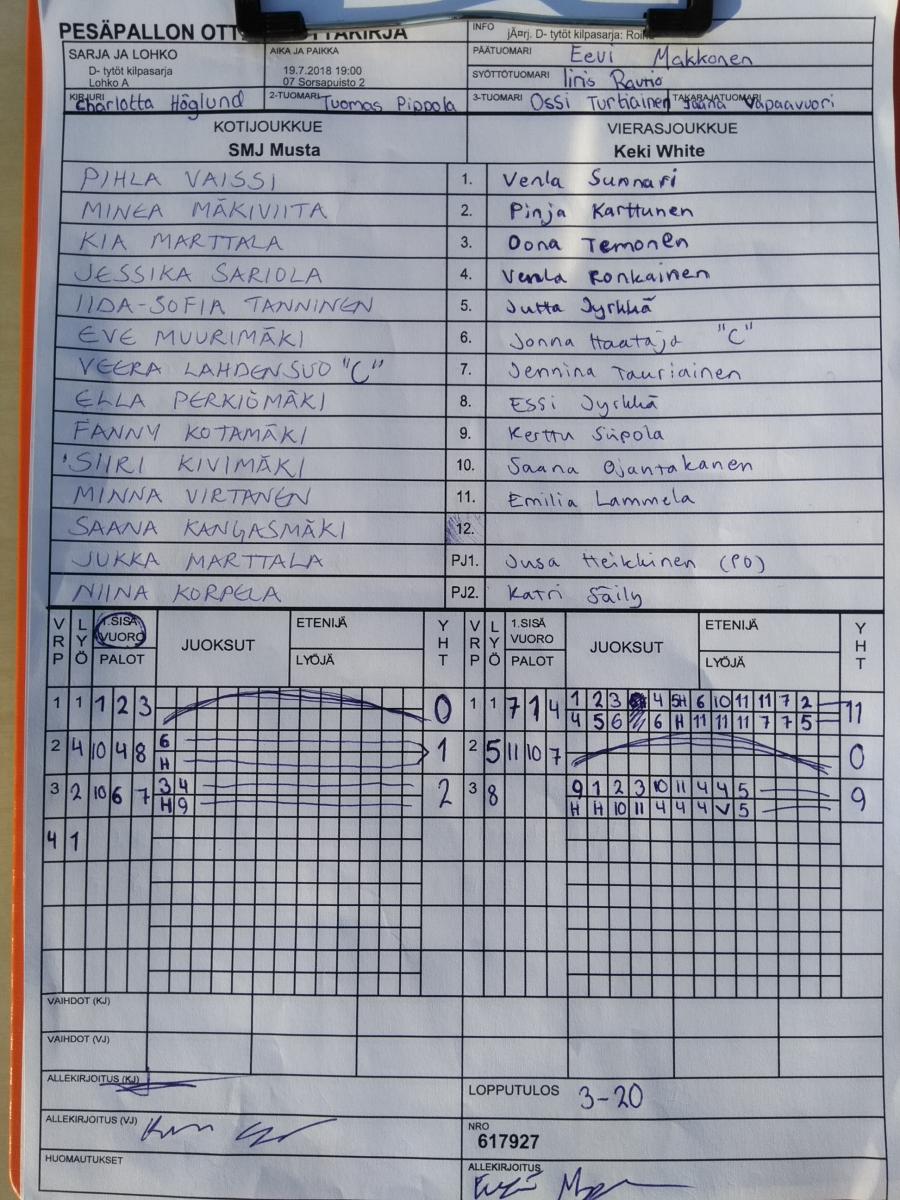 PESÄPALLON OTT TAKIRJA
INFO jÄ¤rj. D- tytöt kilpasarja: Roin
SARJA JA LOHKO
D- tytöt kilpasarja
Lohko A
AIKA JA PAIKKA
19.7.2018 19:00
07 Sorsapuisto 2
PÄÄTUOMARI Eevi Makkonen
SYÖTTÖTUOMARI Iiris Rautio
KIRJURI Charlotta Höglund 2-TUOMARI Tuomas Pippola 3-TUOMARI Ossi Turtiainen TAKARAJATUOMARI Jaana Vapaavuori
KOTIJOUKKUE VIERASJOUKKUE
SMJ Musta Keki White
PIHLA VAISSI 1. Venla Sunnari
MINEA MÄKIVIITA 2. Pinja Karttunen
KIA MARTTALA 3. Oona Temonen
JESSIKA SARIOLA 4. Venla Ronkainen
IIDA-SOFIA TANNINEN 5. Jutta Jyrkkä
EVE MUURIMÄKI 6. Jonna Haataja "C"
VEERA LAHDENSUO "C" 7. Jennina Tauriainen
ELLA PERKIÖMÄKI 8. Essi Jyrkkä
FANNY KOTAMÄKI 9. Kerttu Siipola
SIIRI KIVIMÄKI 10. Saana Ojantakanen
MINNA VIRTANEN 11. Emilia Lammela
SAANA KANGASMÄKI 12.
JUKKA MARTTALA PJ1. Jusa Heikkinen (PO)
NIINA KORPELA PJ2. Katri Säily
VRP LYÖ 1.SISÄ VUORO PALOT JUOKSUT ETENIJÄ LYÖJÄ YHT VRP LYÖ 1.SISÄ VUORO PALOT JUOKSUT ETENIJÄ LYÖJÄ YHT
1 1 1 2 3 0 1 1 7 1 4 1 2 3 4 5H 6 10 11 11 7 2 11
4 5 6 6 H 11 11 11 7 7 5
2 4 10 4 8 6 1 2 5 11 10 7 0
H
3 2 10 6 7 3 4 2 3 8 9 1 2 3 10 11 4 4 5 9
H 9 H H 10 11 4 4 4 V 5
4 1
VAIHDOT (KJ)
VAIHDOT (VJ)
ALLEKIRJOITUS (KJ)
LOPPUTULOS 3-20
ALLEKIRJOITUS (VJ)
NRO
617927
HUOMAUTUKSET
ALLEKIRJOITUS